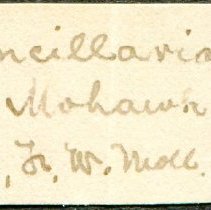 ncillaria
Mohawk
, Fr. W. Moll.